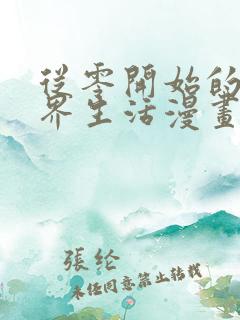 從零開始的
界生活漫畫
張纶
未经同意禁止转载